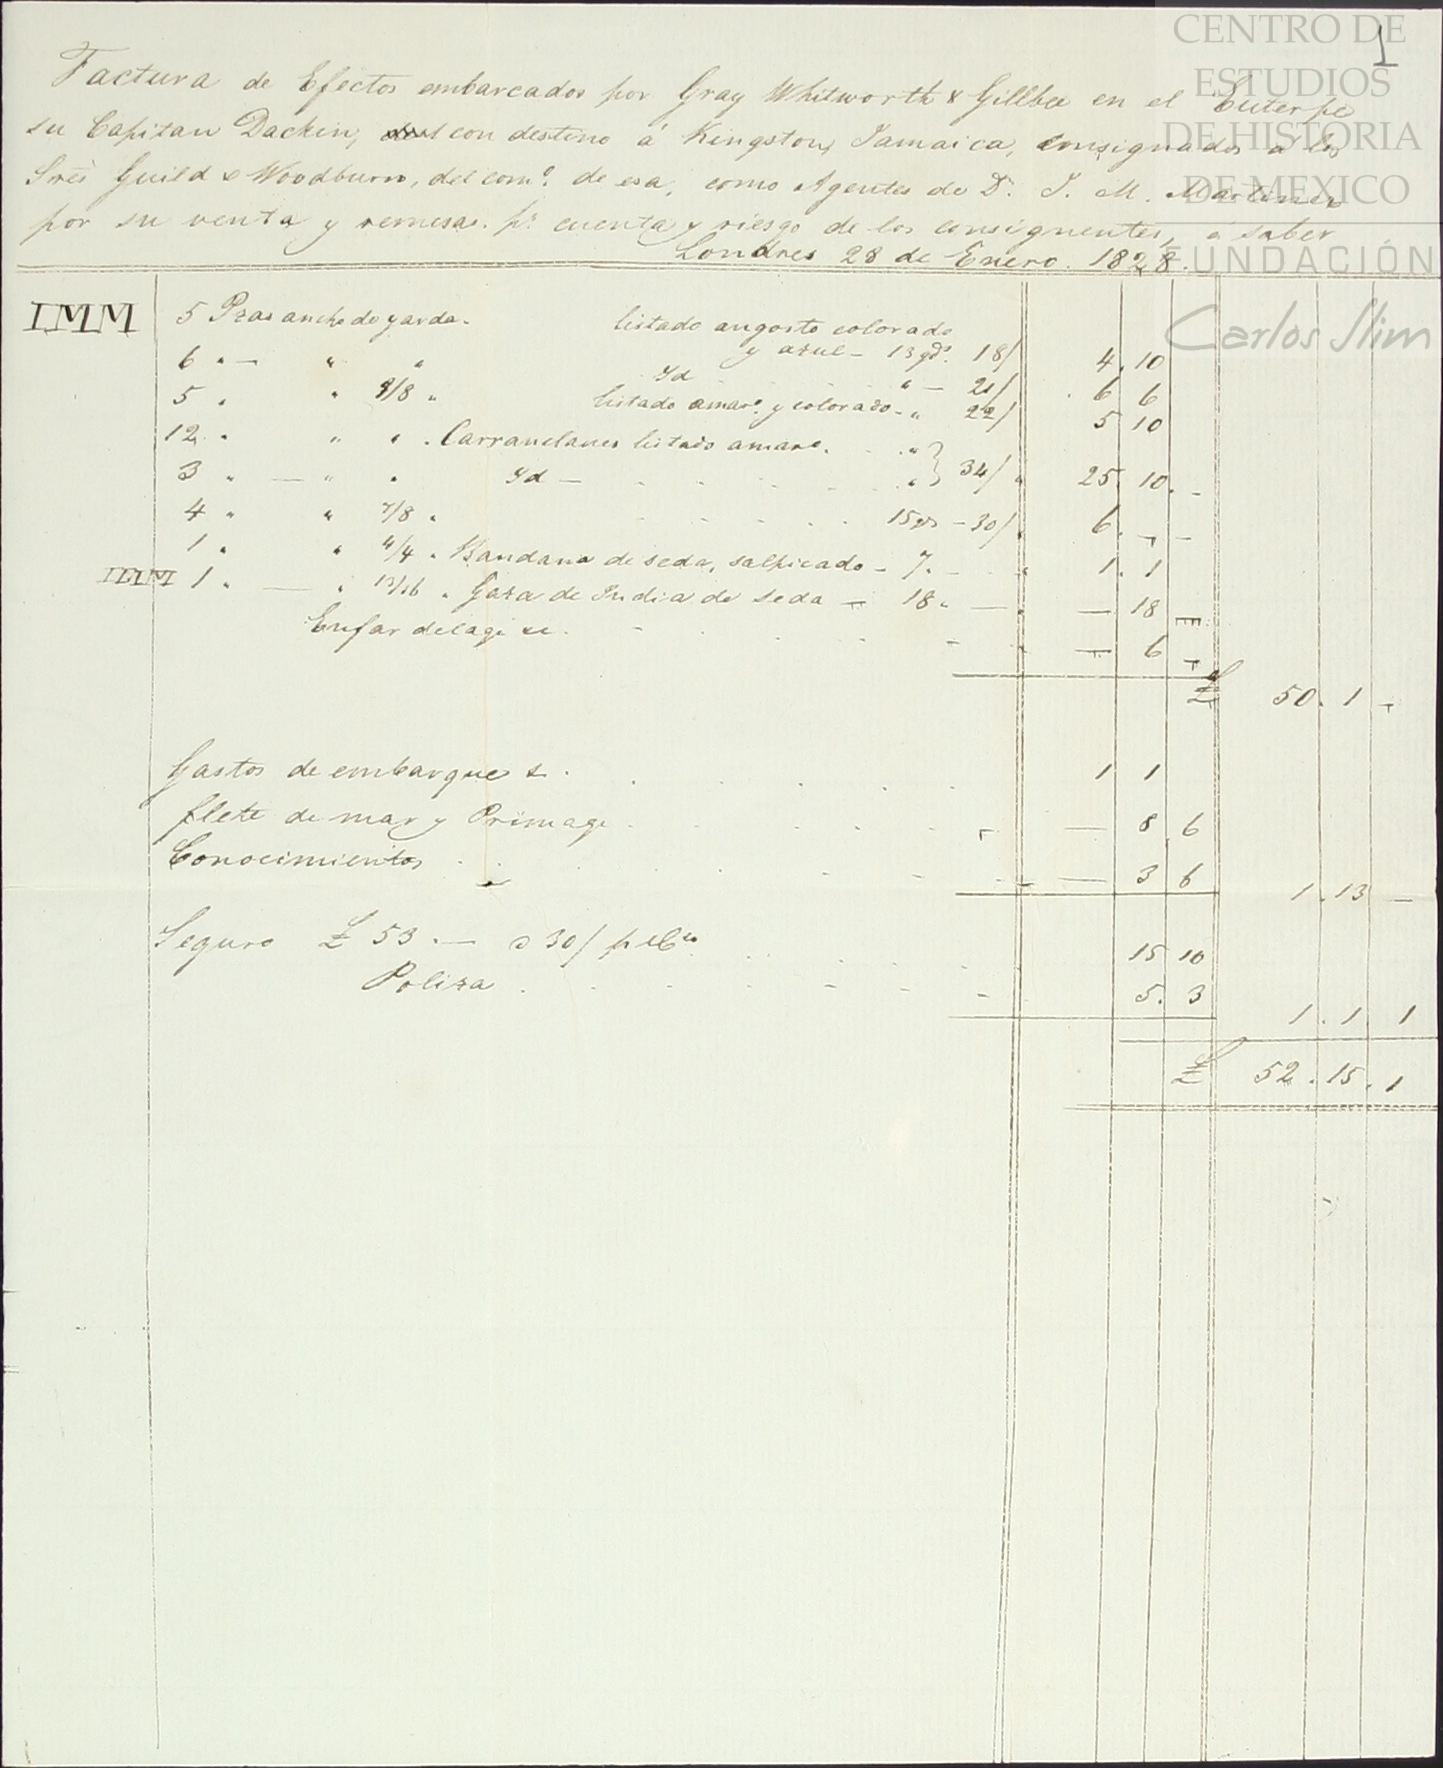 CENTRO DE
ESTUDIOS
DE HISTORIA
DE MEXICO
FUNDACIÓN
Carlos Slim
1
Factura de Efectos embarcados por Gray Whitworth & Gillbee en el Euterpe
su Capitan Dackin, con destino á Kingston, Jamaica, consignados a los
Sres Guild & Woodburn, del como. de esa, como Agentes de Dn. J. M. Martinez
por su venta y remesas. pr. cuenta y riesgo de los consignentes, a saber
Londres 28 de Enero. 1828.
IMM 5 Pzas ancho de yarda. listado angosto colorado
y azul - 13 yds. 18/ 4. 10
6 " — " " Yd " - 21/ 6 6
5 " " 9/8 " listado amaro. y colorado - " 22/ 5 10
12 " " " . Carranclanes listado amaro. "
3 " — " " Yd — " } 34/ " 25. 10. -
4 " " 7/8 " 15 yds - 30/ 6. - -
1 " " 4/4 " Bandana de seda, salpicado - 7. - " 1. 1
IMM 1 " — " 13/16 " Gaza de India de seda — 18. — — 18 —
Enfardelage &c. — 6 -
£ 50. 1 -
Gastos de embarque & . 1 1
flete de mar y Primage . — 8. 6
Conocimientos . . — 3 6 1. 13 —
Seguro £ 53 . — a 30/ p 15 10
Poliza . 5. 3 1. 1 1
£ 52. 15. 1